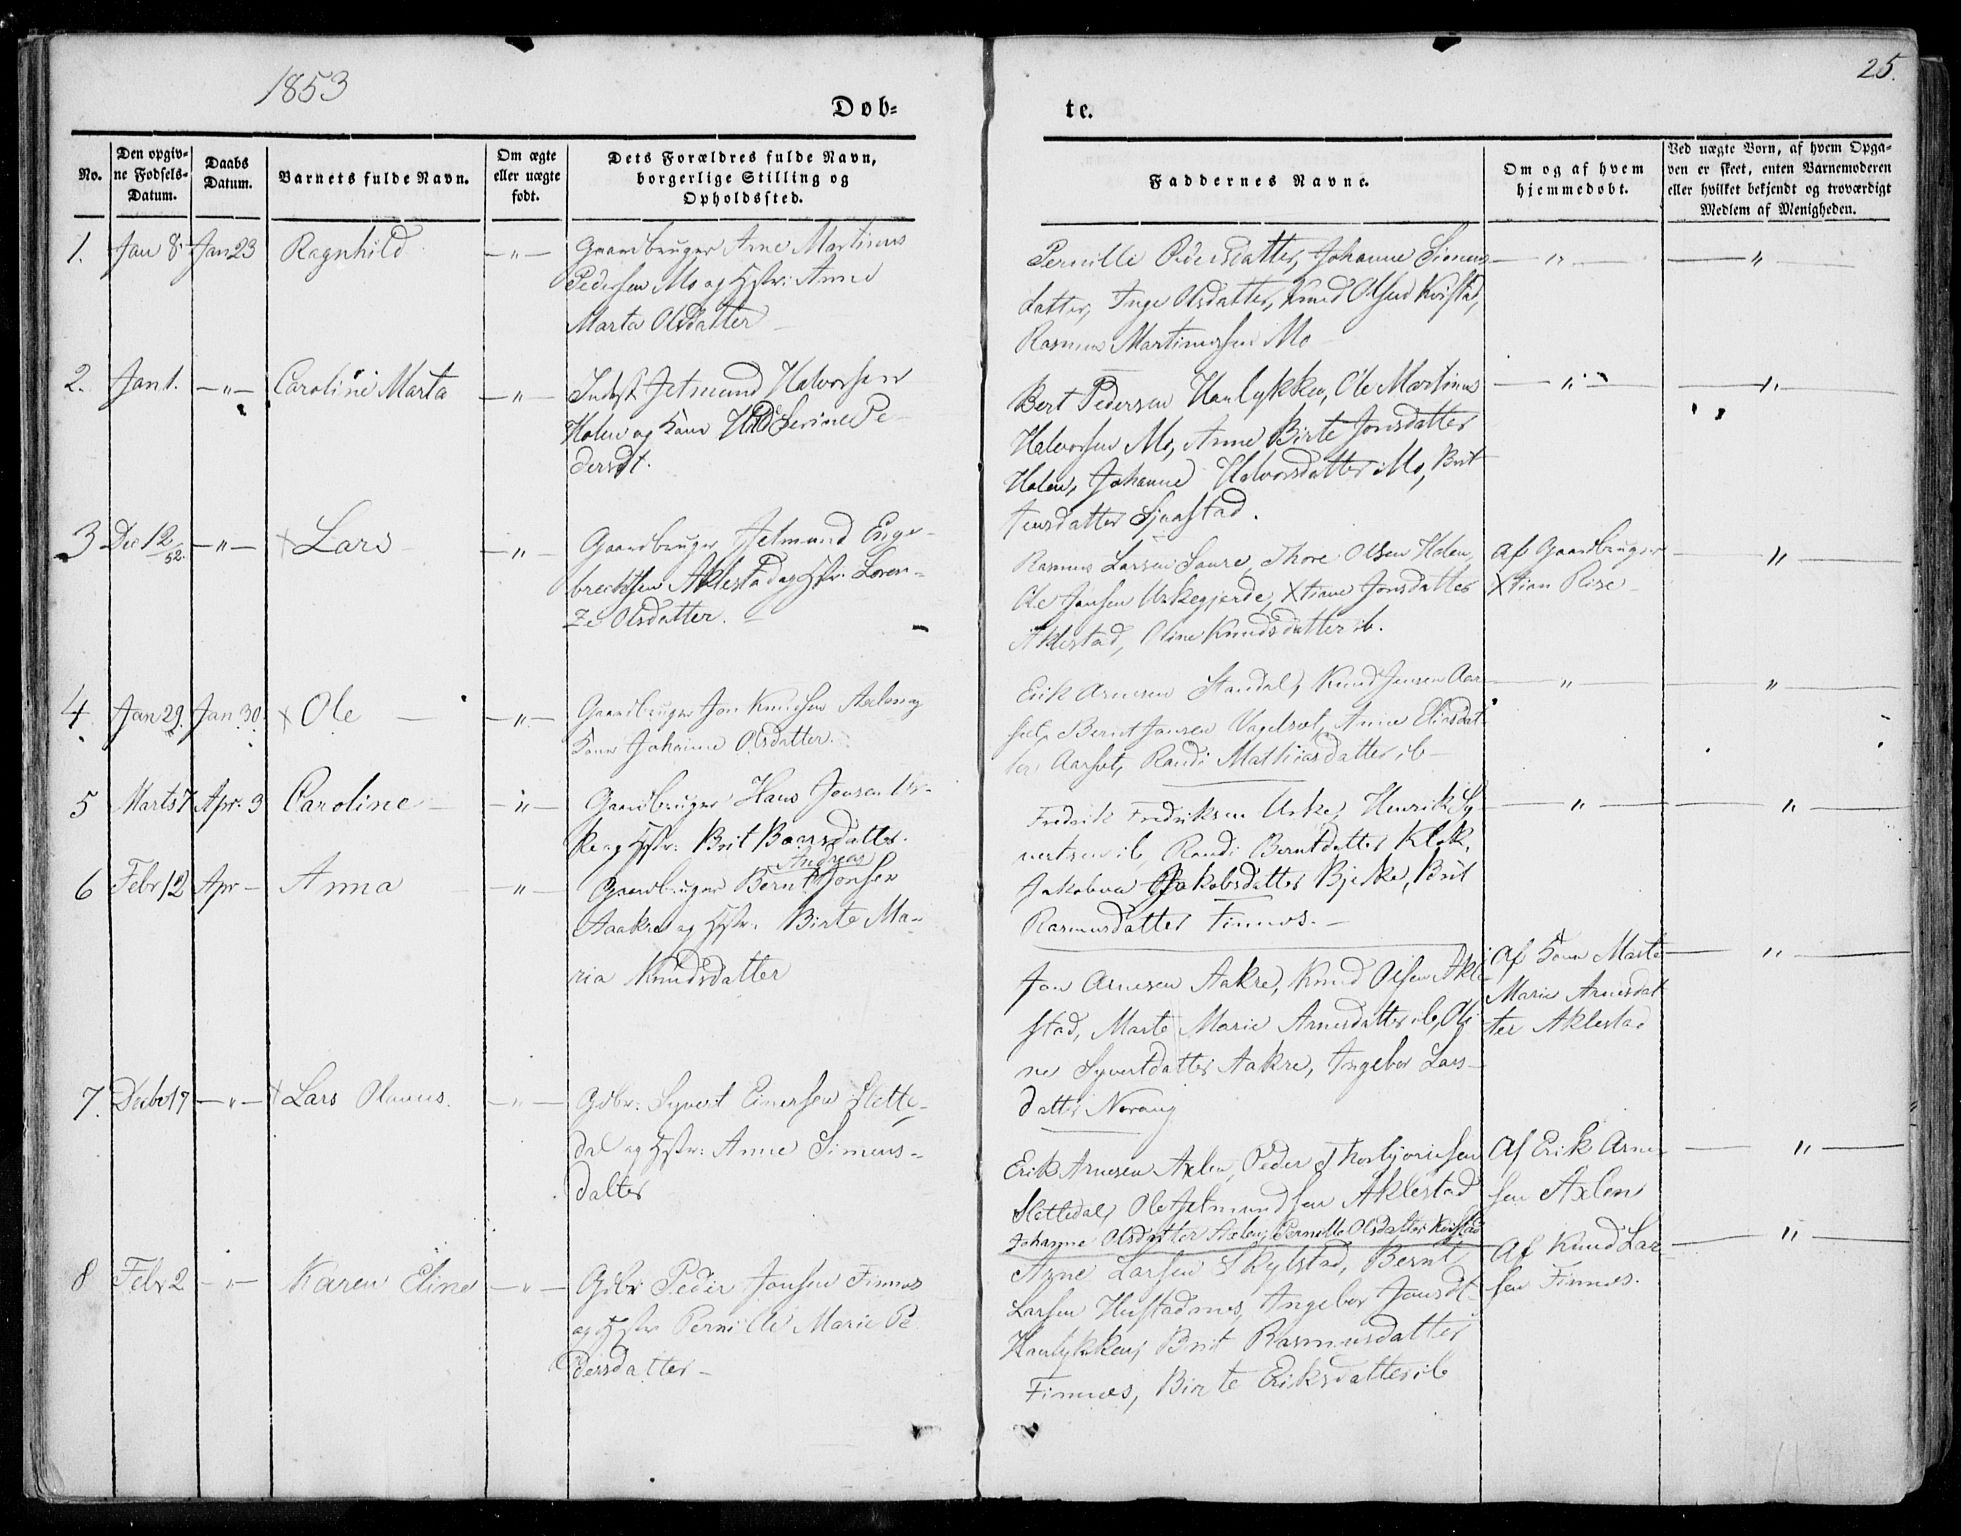 1853
25.
Døb-
te.
No.
Den opgiv-
ne Fødsels-
Datum.
Daabs
Datum.
Barnets fulde Navn.
Om ægte
eller uægte
født.
Dets Forældres fulde Navn,
borgerlige Stilling og
Opholdssted.
Faddernes Navne.
Om og af hvem
hjemmedøbt.
Ved uægte Børn, af hvem Opga-
ven er skeet, enten Barnemoderen
eller hvilket bekjendt og troværdigt
Medlem af Menigheden.
1. Jan 8. Jan 23 Ragnhild — " —
Gaardbruger Arne Martinus
Pedersen Mo og Hstr: Anne
Marta Olsdatter
Pernille Pedersdatter, Johanne Simens
datter, Inge Olsdatter, Knud Olsen Kvistad,
Rasmus Martinussen Mo
— " —
— " —
2. Jan 1. — " — Caroline Marta — " —
Indst. Jetmund Halvorsen
Holen og Kone Serine Pe-
dersdt.
Bert Pedersen Haulykken, Ole Martinus
Halvorsen Mo, Anne Birte Jonsdatter
Holen, Johanne Halvorsdatter Mo, Brit
Jensdatter
— " —
— " —
3 Dec 12/52. — " — x Lars — " —
Gaardbruger Jetmund Enge-
brechtsen Aklestad og Hstr: Loren-
ze Olsdatter.
Rasmus Larsen Saure, Thore Olsen Holen,
Ole Jonsen Urkegjerde, Xtiane Jonsdatter
Aklestad, Oline Knudsdatter ib.
Af Gaardbruger
Xtian Rise
— " —
4. Jan 29. Jan 30. x Ole — " —
Gaardbruger Jon Knudsen Axlen og
Kone Johanne Olsdatter.
Erik Arnesen Standal, Knud Jensen Aar-
set, Bernt Jansen Anne Eliasdat
ter Aarset, Randi Mathiasdatter ib
— " —
— " —
5 Marts 7 Apr: 3 Caroline — " —
Gaardbruger Hans Jonsen Ur-
ke og Hstr: Brit Baarsdatter.
Fredrik Fredriksen Urke, Henrik Sy
vertsen ib, Randi Berntdatter Klok,
Jakobsdatter Bjerke, Brit
Rasmusdatter Finnes.
— " —
— " —
6 Febr 12 Apr — Anna "
Andreas
Gaardbruger Bernt Jonsen
Aakre og Hstr. Birte Ma-
ria Knudsdatter
Jon Arnesen Aakre, Knud Olsen Akle-
stad, Marte Marie Arnesdatter ib, Oli
ne Syvertdatter Aakre, Ingebor Lars-
datter Norang
Af Kone Marte
Marie Arnesdat
ter Aklestad
— " —
7. Decbr 17 — " — x Lars Olavus. — " —
Gdbr: Syvert Einersen Slette-
dal og Hstr: Anne Simens-
datter
Erik Arnesen Axlen, Peder Thorbjørnsen
Slettedal, Ole Jetmundsen Aklestad
Johanne Olsdatter Axlen, Pernille Olsdatter Kvistad
Af Erik Arne-
sen Axlen
— " —
8. Febr 2 — " — Karen Eline — " —
Gdbr Peder Jonsen Finnes
og Hstr Pernille Marie Pe
dersdatter
Arne Larsen Skylstad, Bernt
Larsen Hustadnes, Ingebor Jonsdt.
Haulykken, Brit Rasmusdatter
Finnes, Birte Eriksdatter ib
Af Knud Lar
sen Finnes.
— " —